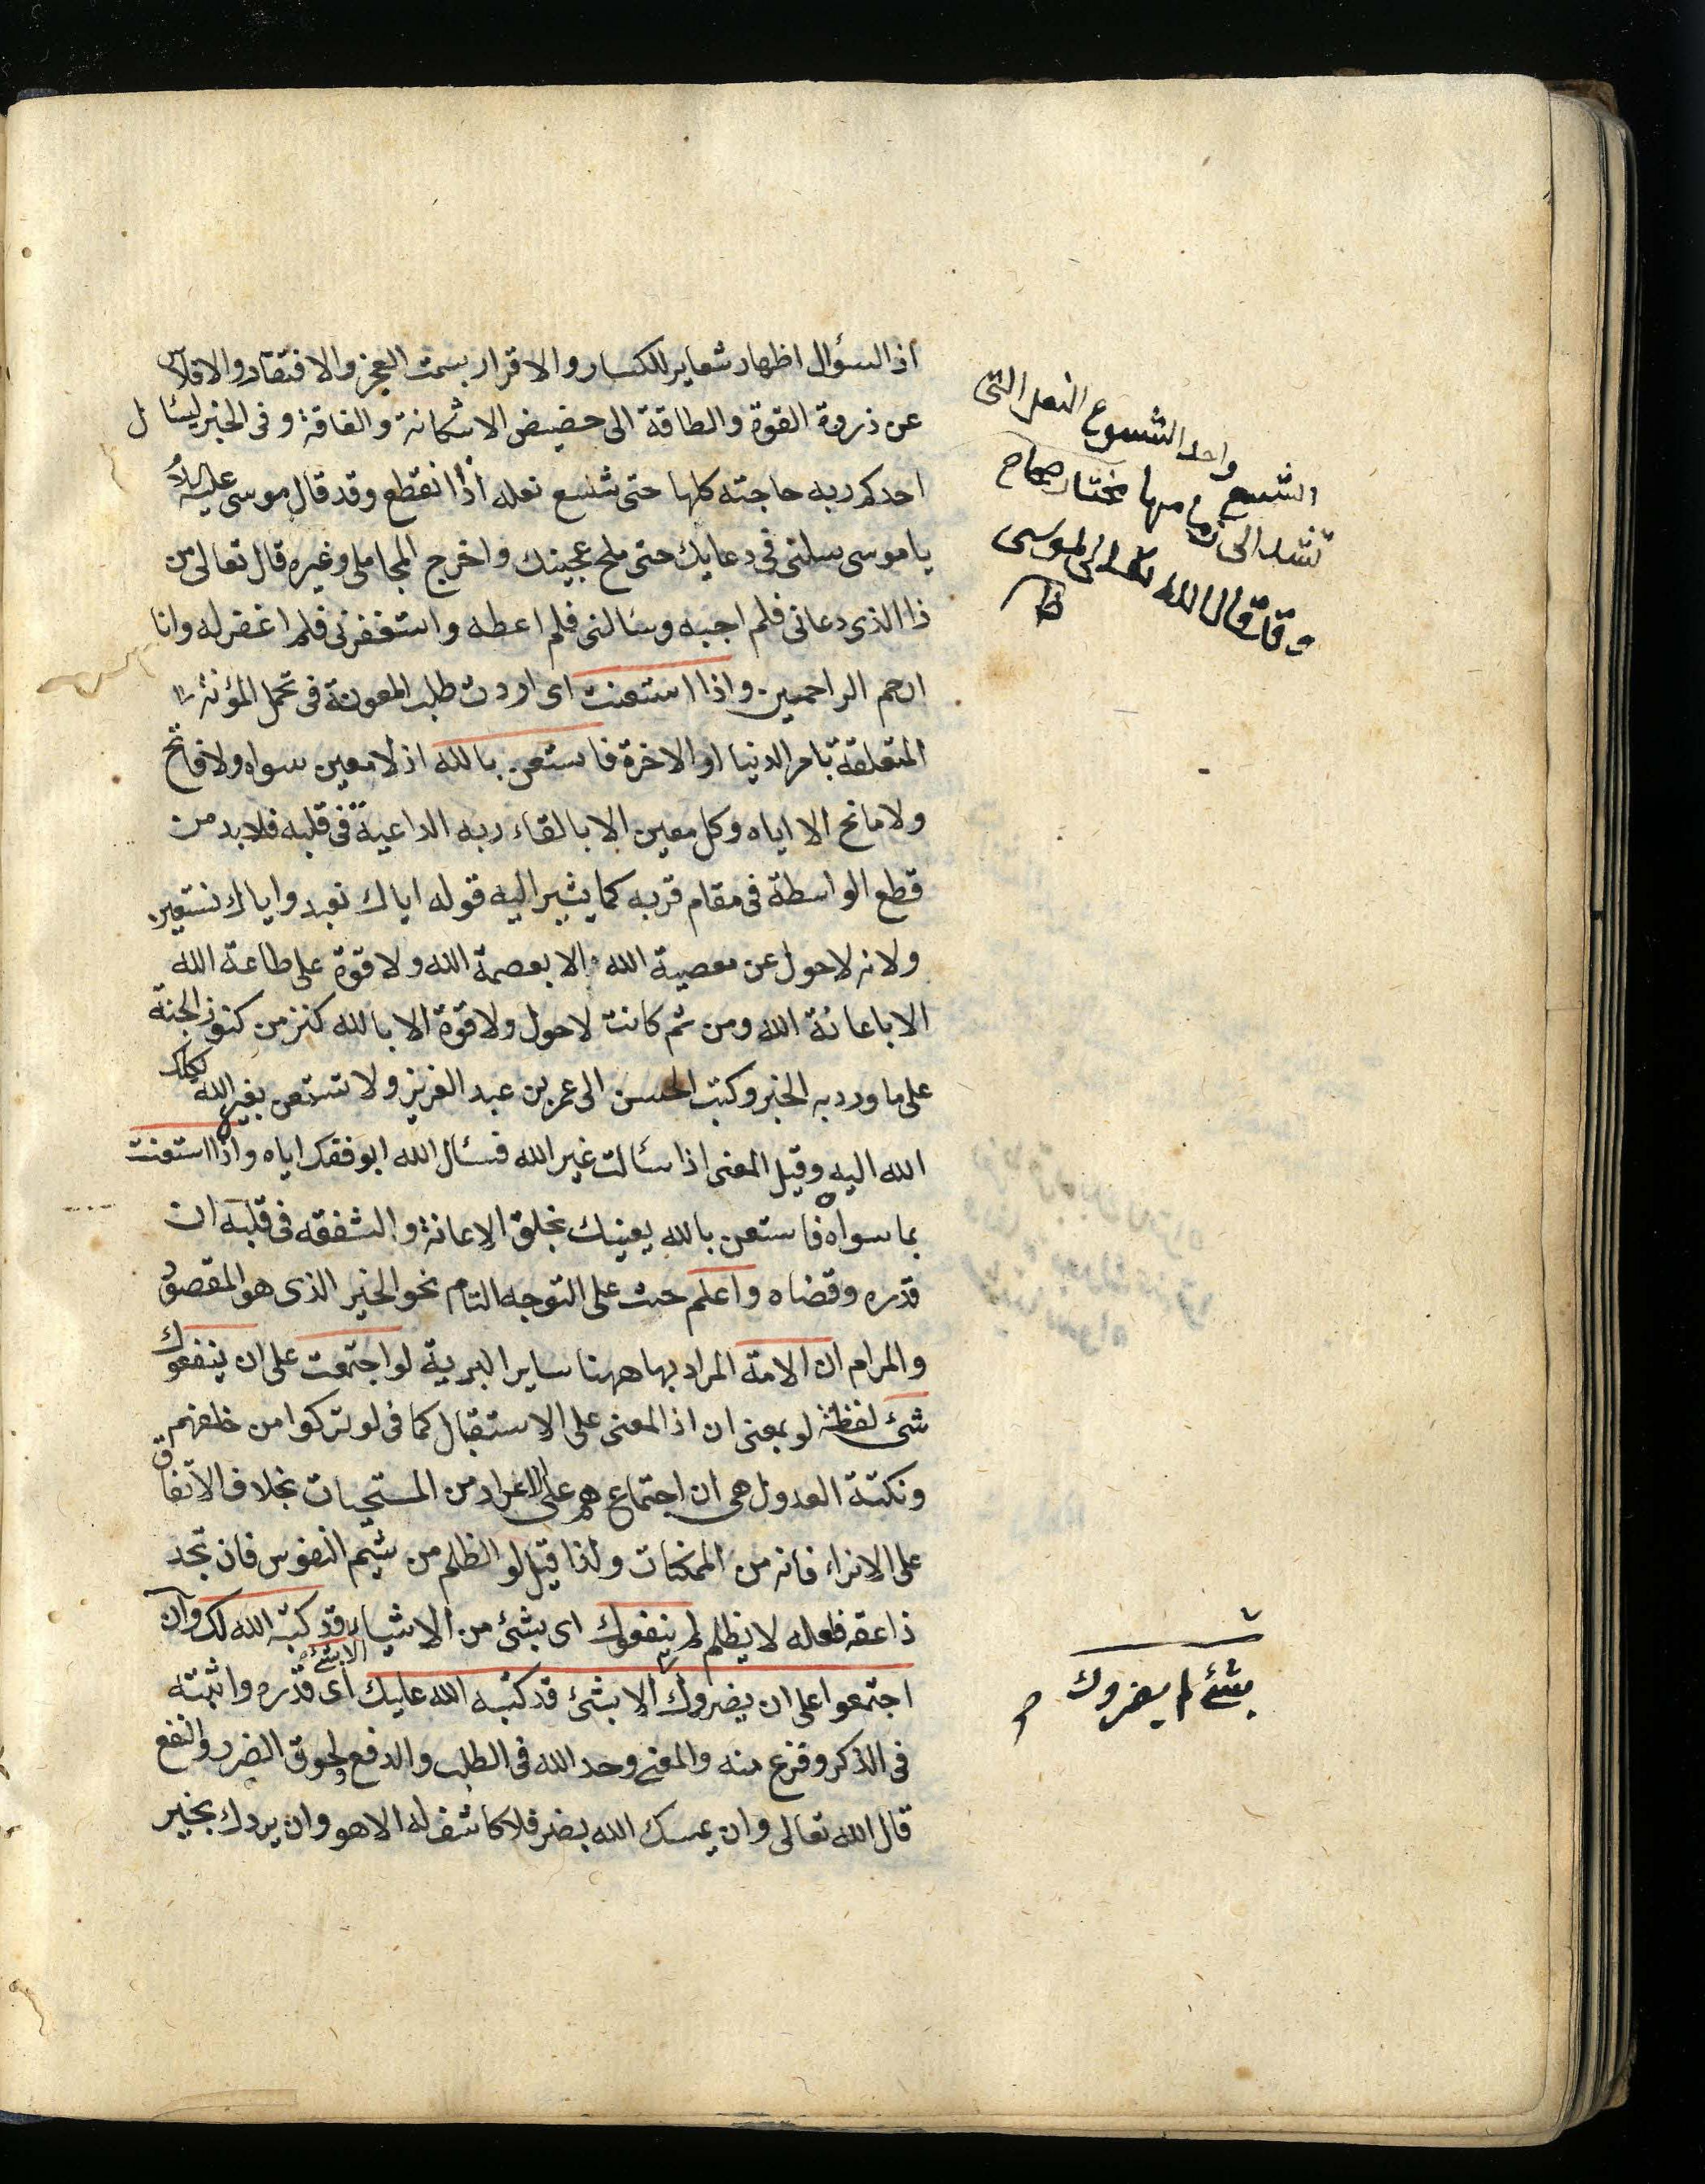 اذ السؤال اظهار شعاير للكسار والاقرار بسمت العجز والافتقار والافلاس
عن ذروة القوة والطاقة الى حضيض الاستكانة والفاقة وفى الخبر ليسئال
احدكم ربه حاجته كلها حتى شسع نعله اذا انقطع وقد قال موسى عليه السلام
يا موسى سلنى فى دعايك حتى ملح عجينك واخرج المحاملى وغيره قال تعالى من
ذا الذى دعانى فلم اجبه وسئالنى فلم اعطه واستغفرنى فلم اغفر له وانا
ارحم الراحمين واذا استعنت اى اردت طلب المعونة فى تحمل المؤنة
المتعلقة بامر الدنيا او الاخرة فاستعن بالله اذ لا معين سواه ولا فاتح
ولا مانح الا اياه وكل معين الا بالقاء ربه الداعية فى قلبه فلا بد من
قطع الواسطة فى مقام قربه كما يشير اليه قوله اياك نعبد واياك نستعين
ولانه لا حول عن معصية الله الا بعصمة الله ولا قوة على طاعة الله
الا باعانة الله ومن ثم كانت لا حول ولا قوة الا بالله كنز من كنوز الجنة
على ما ورد به الخبر وكتب الحسن الى عمر بن عبد العزيز ولا تستعن بغير الله يكلك
الله اليه وقيل المعنى اذا سئالت غير الله فسئال الله ابو فقك اياه واذا استعنت
بما سواه فاستعن بالله يعينك بخلق الاعانة والشفقه فى قلبه ان
قدره وقضاه واعلم حث على التوجه التام نحو الخير الذى هو المقصود
والمرام ان الامة المراد بها ههنا ساير البرية لو اجتمعت على ان ينفعوك
شئ لفظة لو بمعنى ان اذ المعنى على الاستقبال كما فى لو تركوا من خلفهم
ونكتة العدول هى ان اجتماعهم على الاعراد من المستحيات بخلاف الاتفاق
على الانراء فانه من الممكنات ولذا قيل لو الظلم من شيم النفوس فان تجد
ذا عفه فلعله لا يظلم لم ينفعوك اى بشئ من الاشياء الا بشئ قد كتبه الله لك وان
اجتمعوا على ان يضروك الا بشئ قد كتبه الله عليك اى قدره واثبته
فى الذكر وفرغ منه والمعنى وحد الله فى الطلب والدفع ولحوق الضرر والنفع
قال الله تعالى وان يمسك الله بضر فلا كاشف له الا هو وان يردك بخير
الشسع واحد الشسوع النعل التى
تشد الى زمامها مختار صحاح
وقد قال الله تعالى لموسى
بشئ لم يضروك